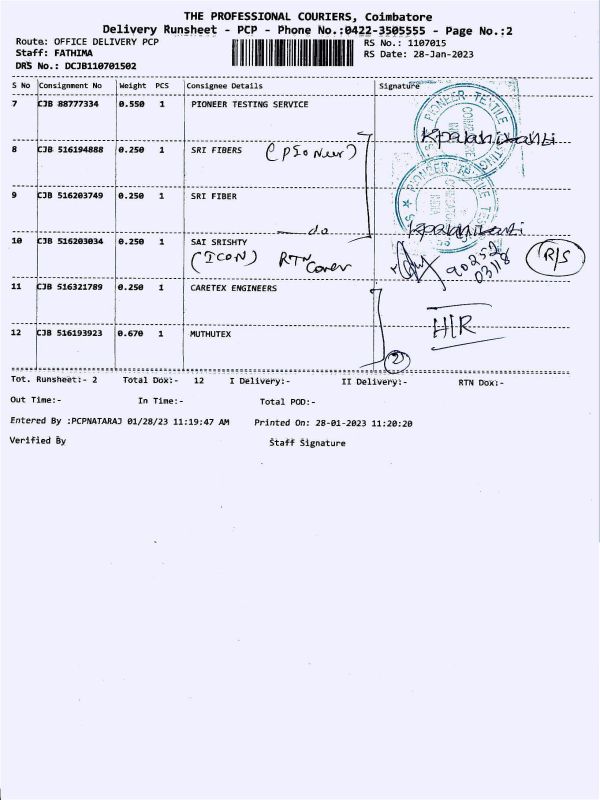 THE PROFESSIONAL COURIERS, Coimbatore
Delivery Runsheet - PCP - Phone No.:0422-3505555 - Page No.:2
Route: OFFICE DELIVERY PCP RS No.: 1107015
Staff: FATHIMA RS Date: 28-Jan-2023
DRS No.: DCJB110701502
S No Consignment No Weight PCS Consignee Details Signature
7 CJB 88777334 0.550 1 PIONEER TESTING SERVICE
8 CJB 516194888 0.250 1 SRI FIBERS (PIoNeer)
9 CJB 516203749 0.250 1 SRI FIBER
do
10 CJB 516203034 0.250 1 SAI SRISHTY
(ICON) RTN Cover 90252 03118 R/S
11 CJB 516321789 0.250 1 CARETEX ENGINEERS
H/R
12 CJB 516193923 0.670 1 MUTHUTEX
2
Tot. Runsheet:- 2 Total Dox:- 12 I Delivery:- II Delivery:- RTN Dox:-
Out Time:- In Time:- Total POD:-
Entered By :PCPNATARAJ 01/28/23 11:19:47 AM Printed On: 28-01-2023 11:20:20
Verified By Staff Signature